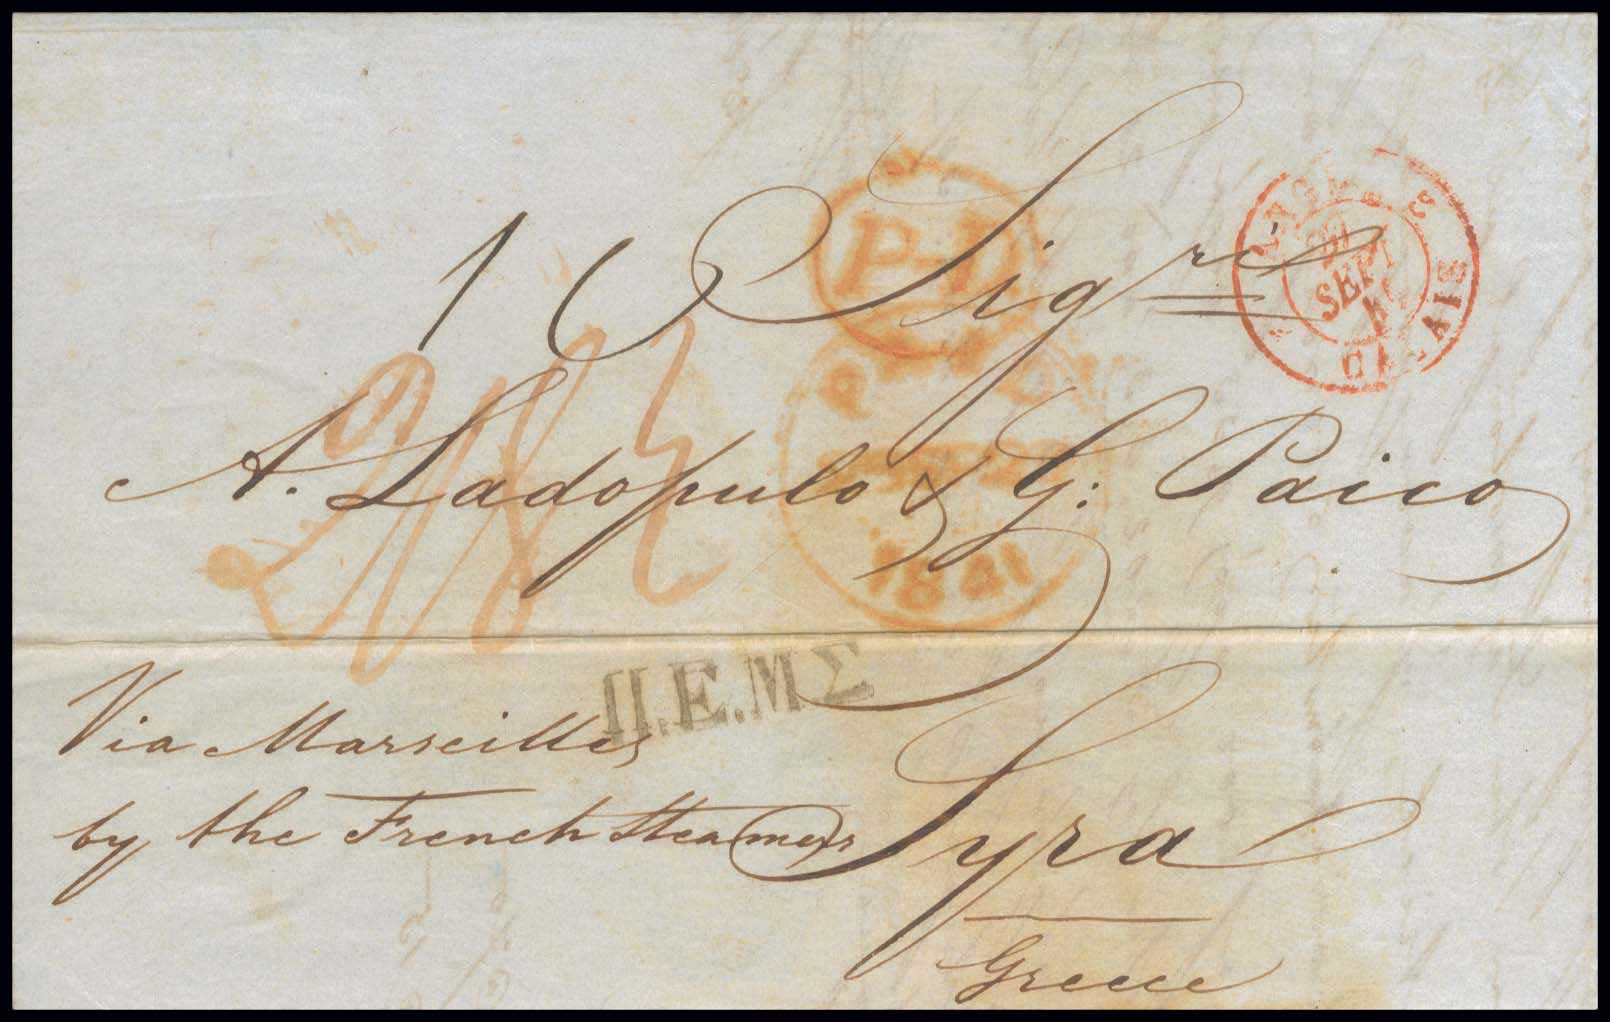 P-L
ANGL. S
SEPT
CALAIS
16 Sigre
A. Ladopulo & G: Paico
PAID
1841
Π.Ε.ΜΣ
Via Marseilles
by the French Steamers
Syra
Greece